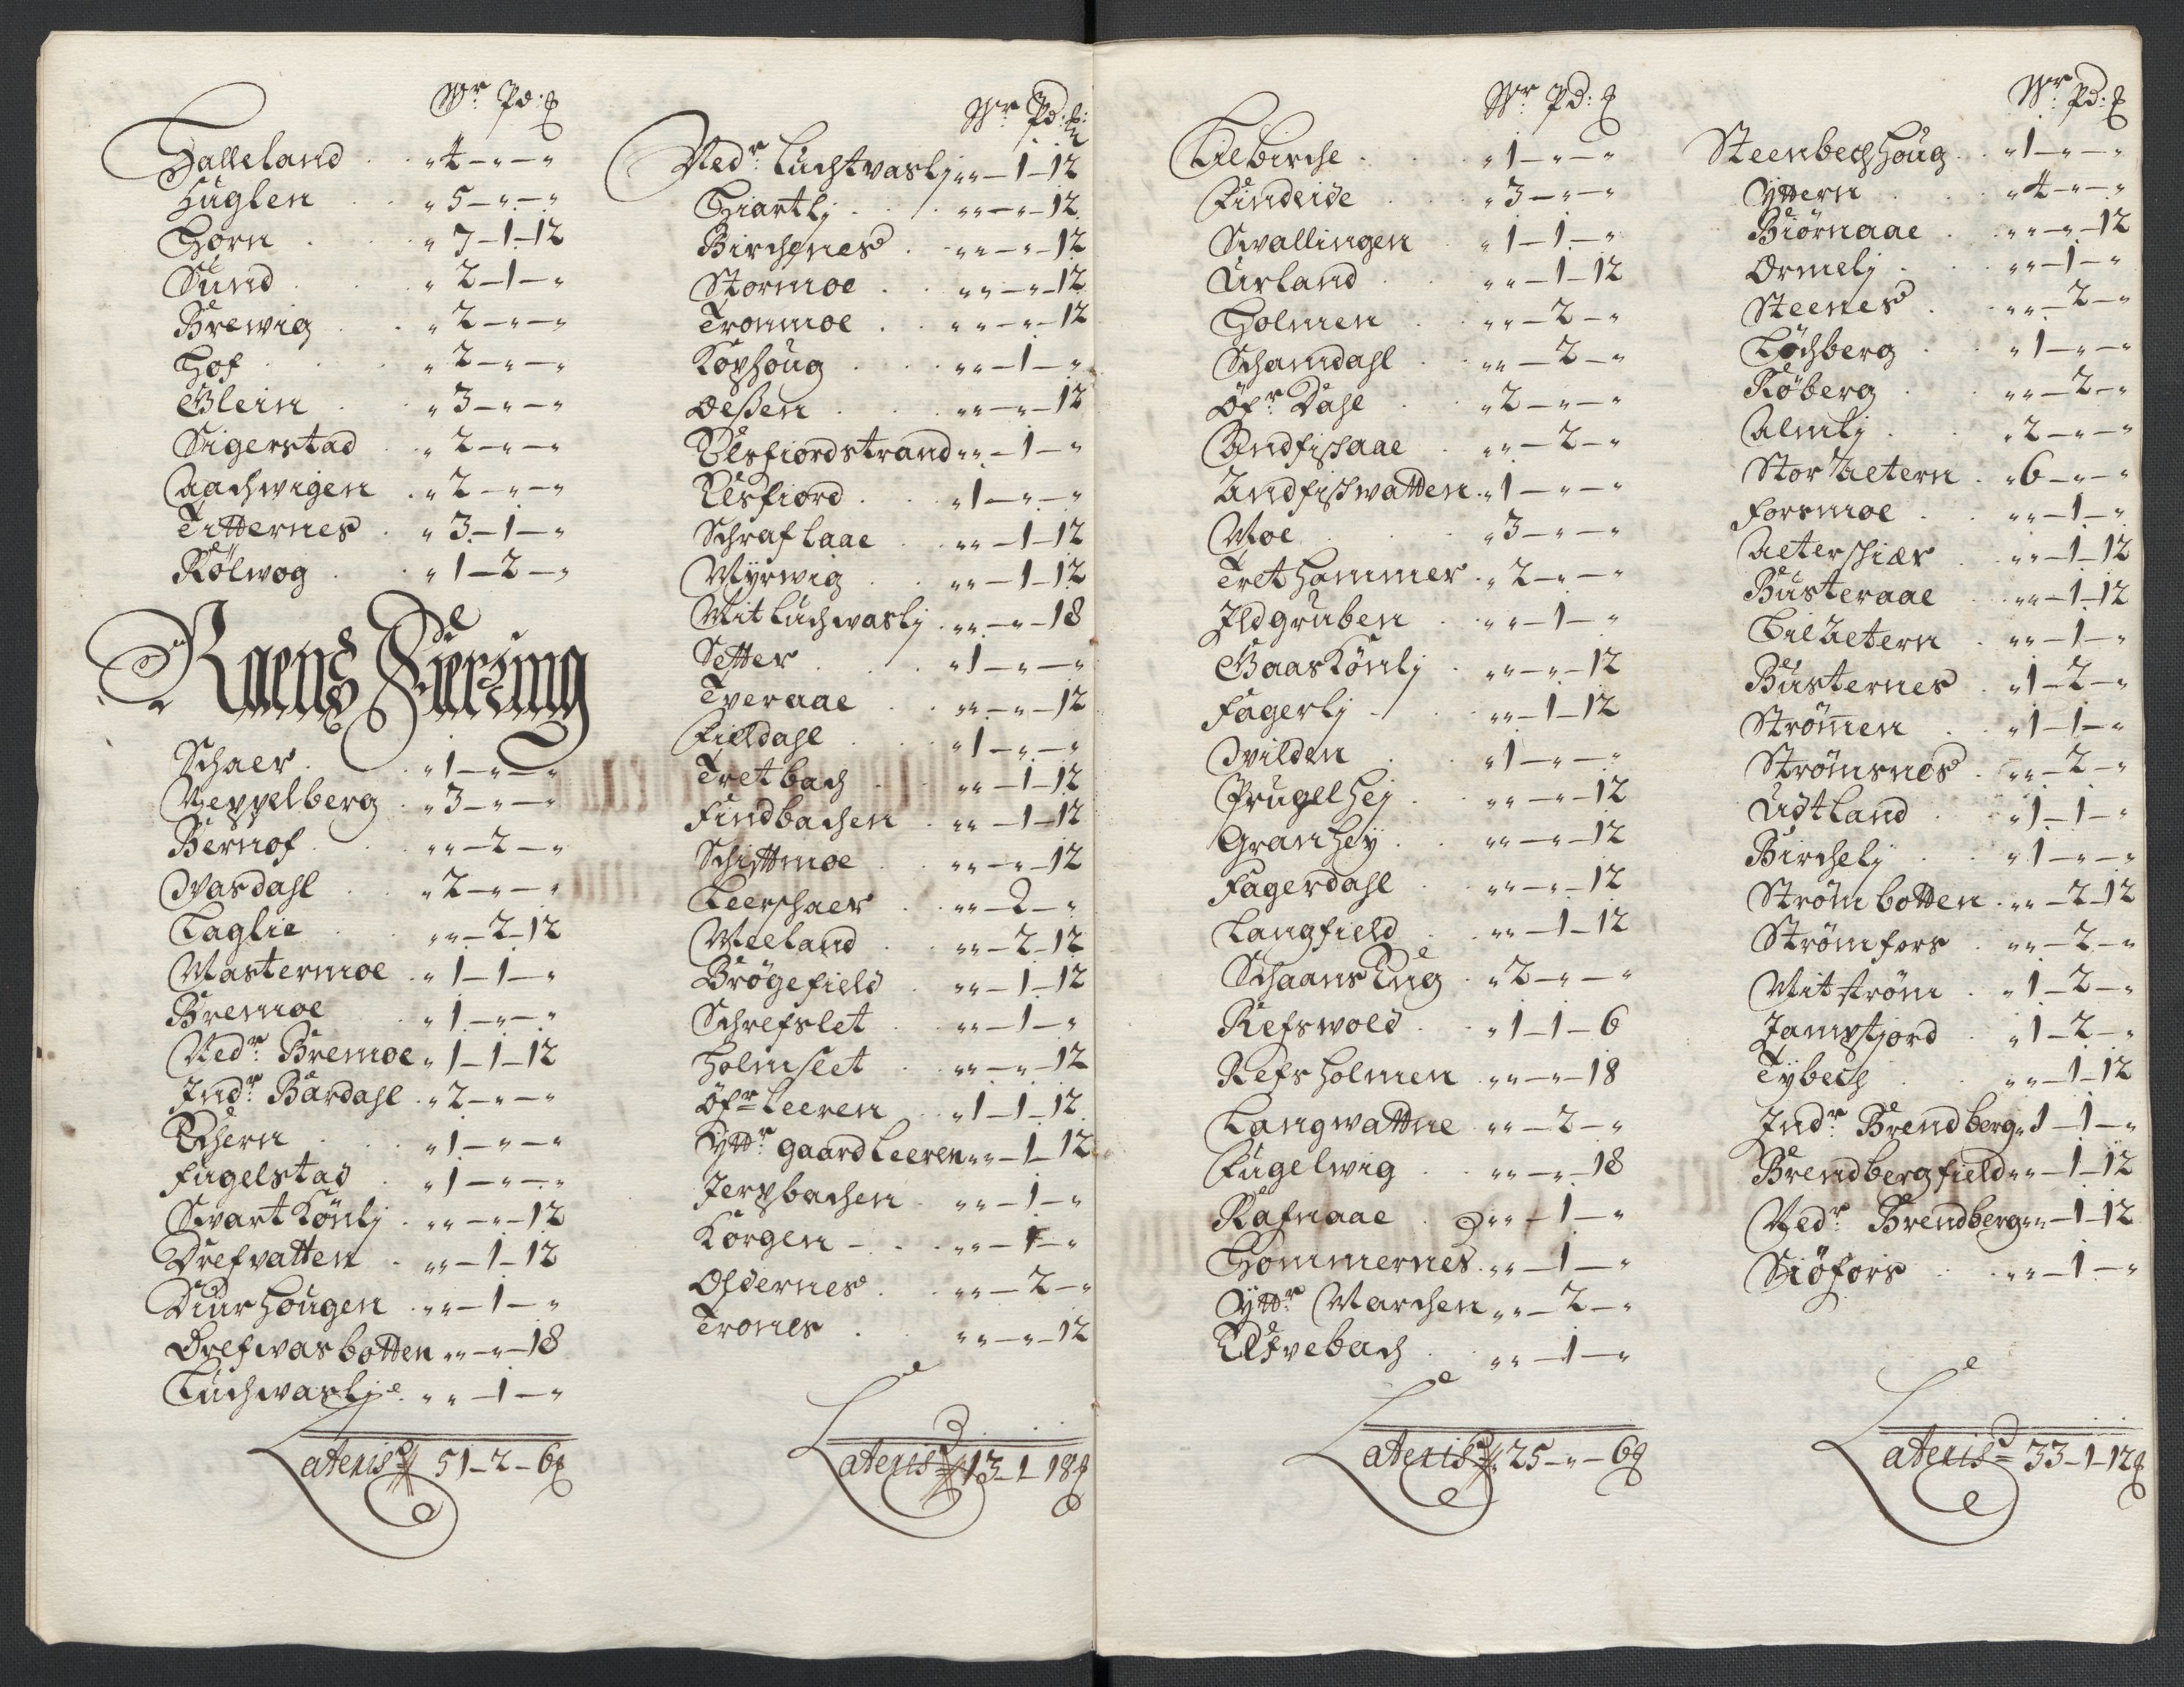 Wr Pd: ꝑ
Halleland „ 4 – „ – „
Huglen „ 5 – „ – „
Horn „ 7 – 1 – 12
Sund „ 2 – 1 – „
Brewig „ 2 – „ – „
Hof „ 2 – „ – „
Glein „ 3 – „ – „
Sigerstad „ 2 – „ – „
Aachwigen „ 2 – „ – „
Titternes „ 3 – 1 – „
Rölwog „ 1 – 2 – „
Raens Fierzing
Schaer „ 1 – „ – „
Neppelberg „ 3 – „ – „
Bernof „ „ – 2 – „
Wasdahl „ 2 – „ – „
Laglie „ „ – 2 – 12
Mastermoe „ 1 – 1 – „
Bremoe „ 1 – „ – „
Nedr Bremoe „ 1 – 1 – 12
Indr Bardahl „ 2 – „ – „
Echern „ 1 – „ – „
Fugelstad „ 1 – „ – „
Swart Könlj „ „ – „ – 12
Drefvatten „ „ – 1 – 12
Diurhougen „ „ – 1 – „
Drefwasbotten „ „ – „ – 18
Luchwaslje „ „ – 1 – „
Lateris 51 – 2 – 6 ꝑ
Wr Pd: ꝑ:
Nedr Luchtvaslj „ „ – 1 – 12
Hiartlj „ „ – „ – 12
Birchenes „ „ – „ – 12
Stormoe „ „ – „ – 12
Tronmoe „ „ – „ – 12
Kophoug „ „ – 1 – „
Oeßen „ „ – „ – 12
Elsfiordstrand „ „ – 1 – „
Elsfiord „ 1 – „ – „
Schraflaae „ „ – 1 – 12
Myrwig „ „ – 1 – 12
Mitluchwaslj „ „ – „ – 18
Setter „ 1 – „ – „
Tveraae „ „ – „ – 12
Fieldahl „ 1 – „ – „
Tretbach „ „ – 1 – 12
Findbachen „ „ – 1 – 12
Schittmoe „ „ – „ – 12
Leerschaer „ „ – 2 – „
Meeland „ „ – 2 – 12
Brögefield „ „ – 1 – 12
Schrefslet „ „ – 1 – „
Holmslet „ „ – „ – 12
Öfr Leeren „ 1 – 1 – 12
Yttr gaard Leeren „ „ – 1 – 12
Jerpbachen „ „ – 1 – „
Korgen „ „ – 1 – „
Oldernes „ „ – 2 – „
Tromes „ „ – „ – 12
Lateris 13 – 1 18 ꝑ
Wr Pd: ꝑ
Lilbirche „ 1 – „ – „
Findeide „ 3 – „ – „
Swallingen „ 1 – 1 – „
Urland „ „ – 1 – 12
Holmen „ „ – 2 – „
Schamdahl „ „ – 2 – „
Öfr Dahl „ 2 – „ – „
Andfißaae „ „ – 2 – „
Andfißwatten „ 1 – „ – „
Moe „ 3 – „ – „
Trethammer „ 2 – „ – „
Ildgruben „ „ – 1 – „
Gaaskönlj „ „ – „ – 12
Fagerlj „ „ – 1 – 12
Wilden „ 1 – „ – „
Prugelhej „ „ – „ – 12
Granhey „ „ – „ – 12
Fagerdahl „ „ – „ – 12
Langfield „ „ – 1 – 12
Schaanseng „ 2 – „ – „
Refswold „ 1 – 1 – 6
Refsholmen „ „ – „ – 18
Langwattne „ „ – 2 – „
Fugelwig „ „ – „ – 18
Rafnaae „ „ – 1 – „
Hommernes „ „ – 1 – „
Yttr Marchen „ „ – 2 – „
Eltvebach „ „ – 1 – „
Lateris 25 – „ – 6 ꝑ
Wr Pd: ꝑ
Steenbechhoug „ 1 – „ – „
Yttern „ 4 – „ – „
Biörnaae „ „ – „ – 12
Ormelj „ „ – 1 – „
Steenes „ „ – 2 – „
Löchberg „ 1 – „ – „
Röberg „ „ – 2 – „
Almlj „ 2 – „ – „
Stor Aetern „ 6 – „ – „
Forsmoe „ „ – 1 – „
Aeterschiær „ „ – 1 – 12
Busteraae „ „ – 1 – 12
Lilaetern „ „ – 1 – „
Busternes „ 1 – 2 – „
Strömen „ 1 – 1 – „
Strömsnes „ „ – 2 – „
Udtland „ 1 – 1 – „
Birchelj „ 1 – „ – „
Strömbotten „ „ – 2 – 12
Strömfors „ „ – 2 – „
Mitström „ 1 – 2 – „
Jampstjord „ 1 – 2 – „
Tybech „ „ – 1 – 12
Indr Brendberg „ 1 – 1 – „
Brendbergfield „ „ – 1 – 12
Nedr Brendberg „ „ – 1 – 12
Siöfors „ „ – 1 – „
Lateris 33 – 1 – 12 ꝑ